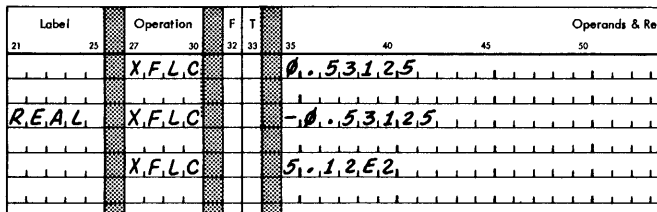 Label Operation F T Operands & Re
21 25 27 30 32 33 35 40 45 50
XFLC 0.53125
REAL XFLC -0.53125
XFLC 5.12E2